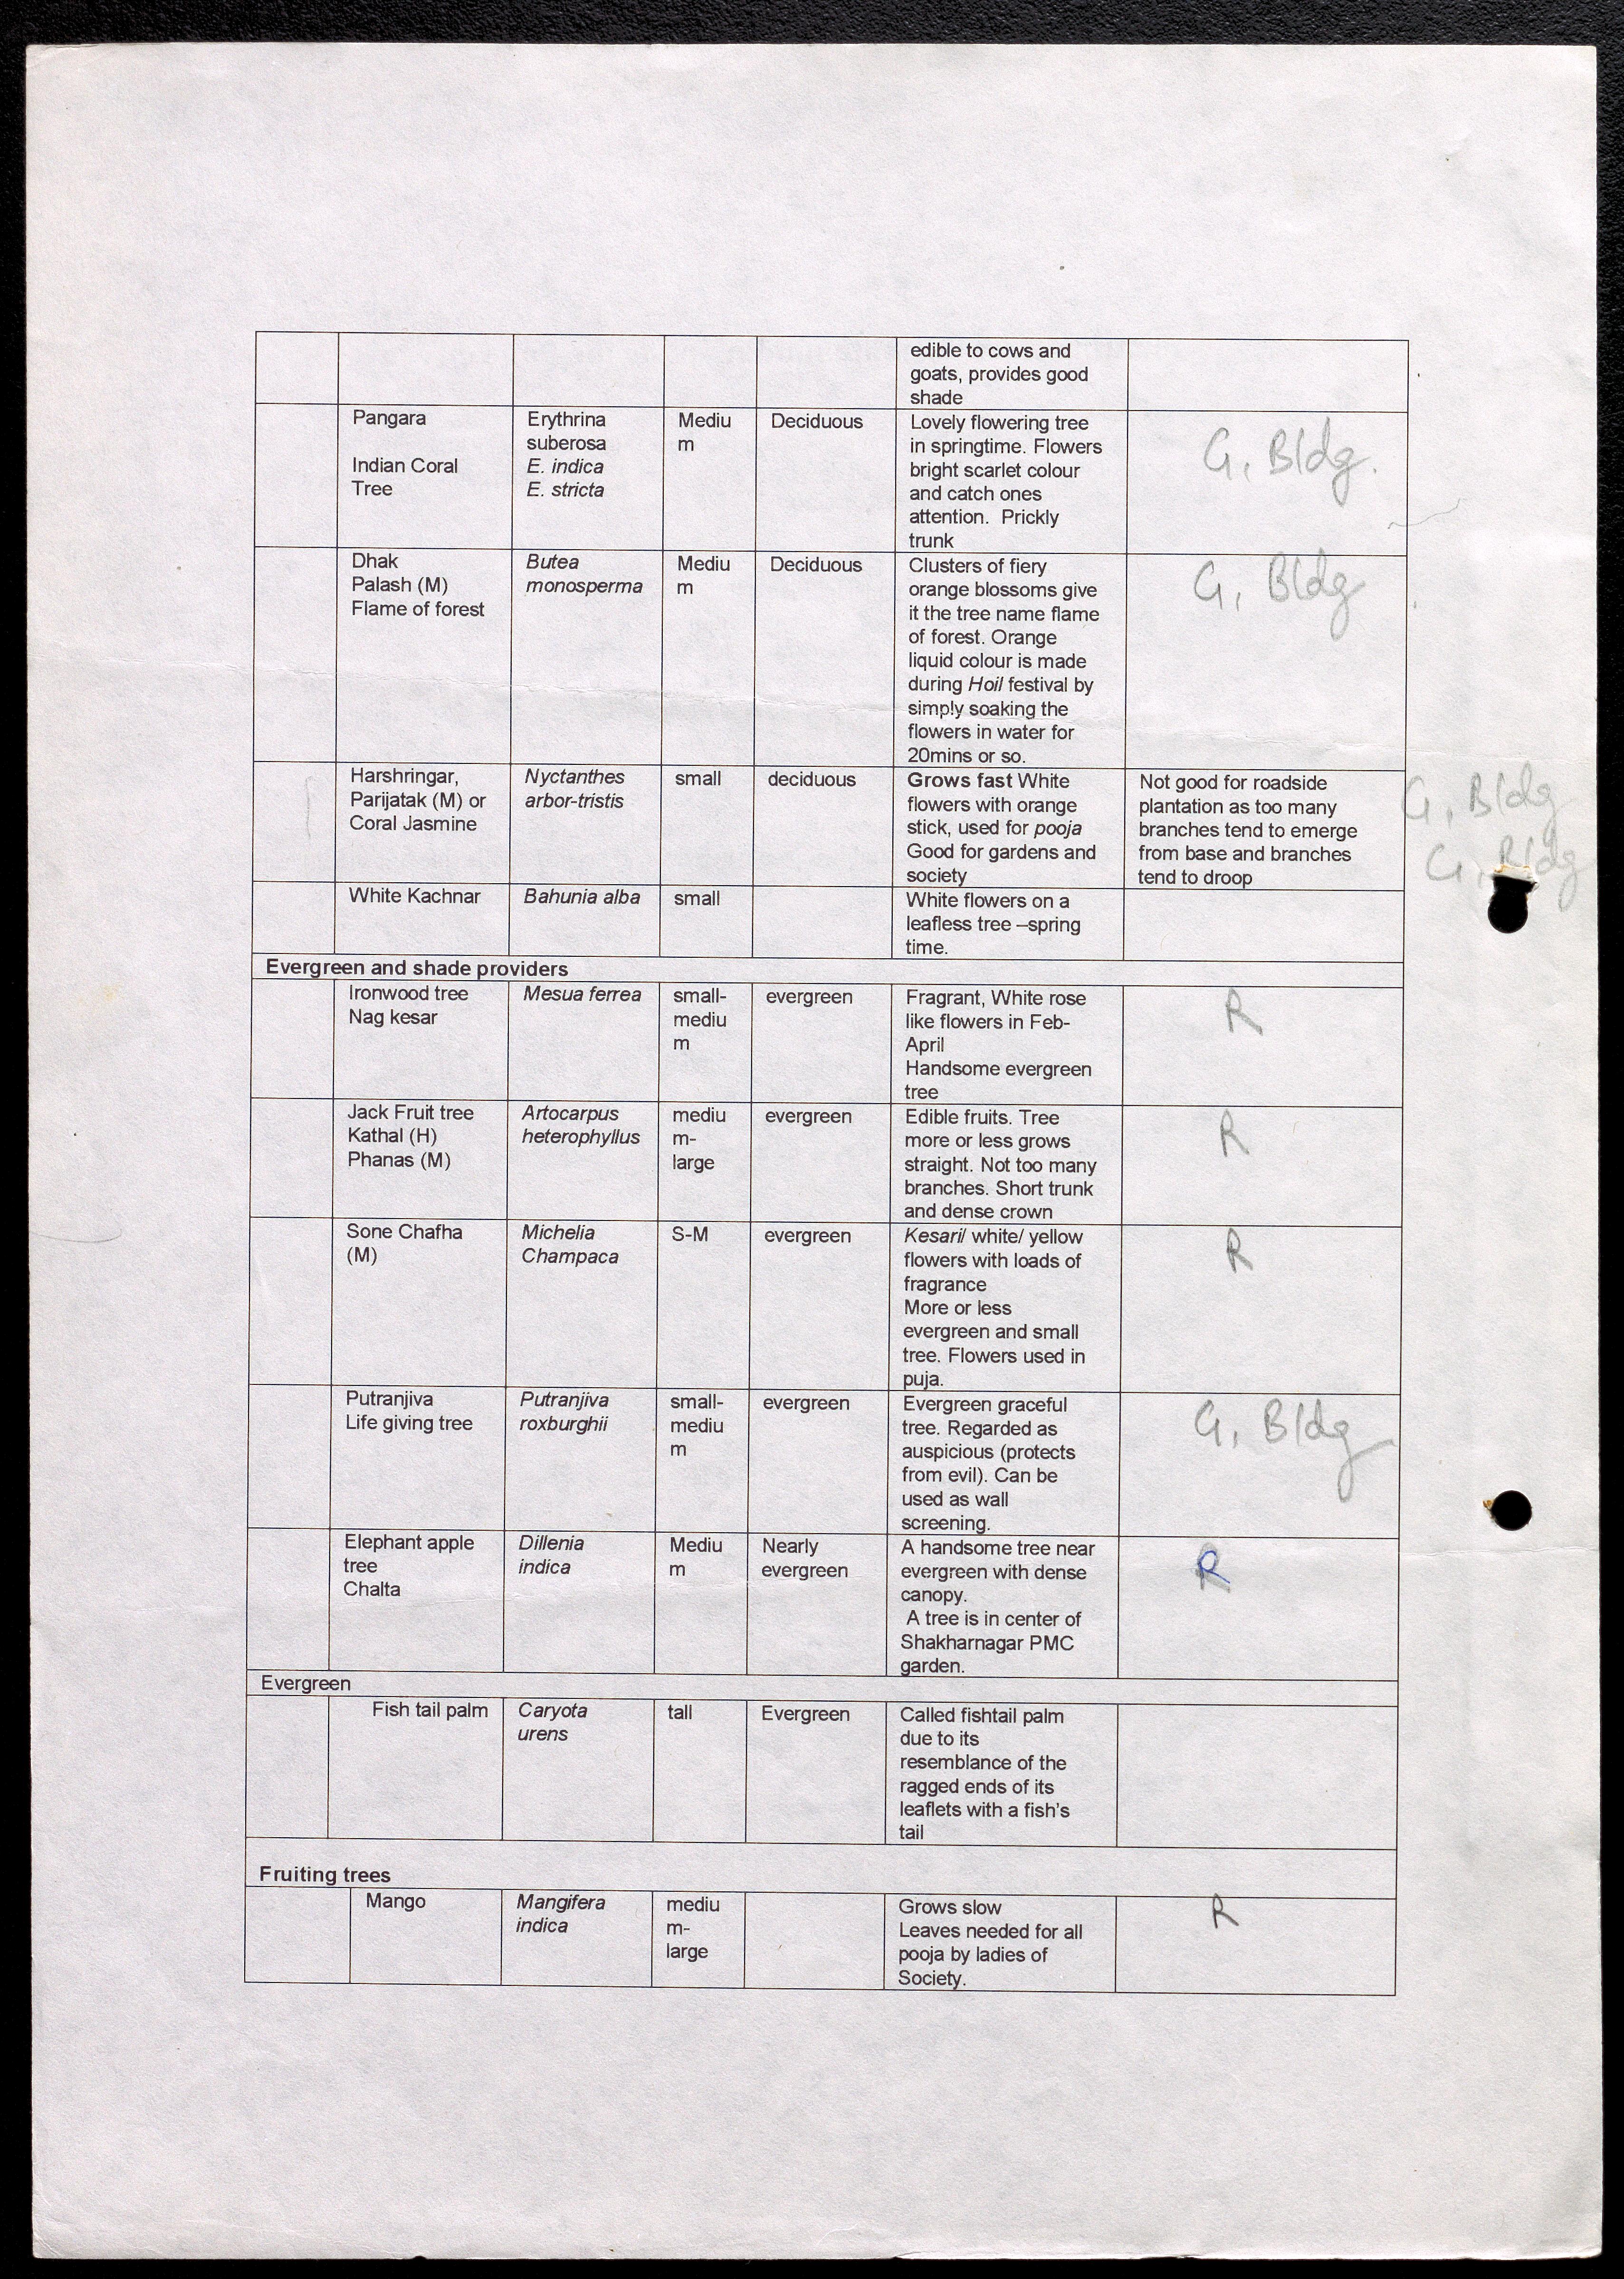 edible to cows and
goats, provides good
shade
Pangara
Indian Coral
Tree
Erythrina
suberosa
E. indica
E. stricta
Mediu
m
Deciduous
Lovely flowering tree
in springtime. Flowers
bright scarlet colour
and catch ones
attention. Prickly
trunk
G, Bldg.
Dhak
Palash (M)
Flame of forest
Butea
monosperma
Mediu
m
Deciduous
Clusters of fiery
orange blossoms give
it the tree name flame
of forest. Orange
liquid colour is made
during Hoil festival by
simply soaking the
flowers in water for
20mins or so.
G, Bldg
Harshringar,
Parijatak (M) or
Coral Jasmine
Nyctanthes
arbor-tristis
small
deciduous
Grows fast White
flowers with orange
stick, used for pooja
Good for gardens and
society
Not good for roadside
plantation as too many
branches tend to emerge
from base and branches
tend to droop
G, Bldg
G, Bldg
White Kachnar
Bahunia alba
small
White flowers on a
leafless tree –spring
time.
Evergreen and shade providers
Ironwood tree
Nag kesar
Mesua ferrea
small-
mediu
m
evergreen
Fragrant, White rose
like flowers in Feb-
April
Handsome evergreen
tree
R
Jack Fruit tree
Kathal (H)
Phanas (M)
Artocarpus
heterophyllus
mediu
m-
large
evergreen
Edible fruits. Tree
more or less grows
straight. Not too many
branches. Short trunk
and dense crown
R
Sone Chafha
(M)
Michelia
Champaca
S-M
evergreen
Kesari/ white/ yellow
flowers with loads of
fragrance
More or less
evergreen and small
tree. Flowers used in
puja.
R
Putranjiva
Life giving tree
Putranjiva
roxburghii
small-
mediu
m
evergreen
Evergreen graceful
tree. Regarded as
auspicious (protects
from evil). Can be
used as wall
screening.
G, Bldg
Elephant apple
tree
Chalta
Dillenia
indica
Mediu
m
Nearly
evergreen
A handsome tree near
evergreen with dense
canopy.
A tree is in center of
Shakharnagar PMC
garden.
R
Evergreen
Fish tail palm
Caryota
urens
tall
Evergreen
Called fishtail palm
due to its
resemblance of the
ragged ends of its
leaflets with a fish's
tail
Fruiting trees
Mango
Mangifera
indica
mediu
m-
large
Grows slow
Leaves needed for all
pooja by ladies of
Society.
R